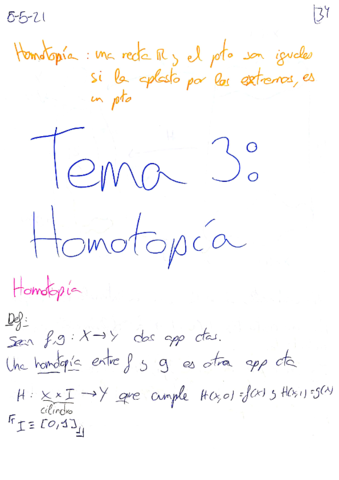 5-5-21
34
Homotopía : una recta ℝ y el pto son iguales
si la aplasto por los extremos, es
un pto
Tema 3:
Homotopía
Homotopía
Def:
Sean f, g : X → Y dos app ctas.
Una homotopía entre f y g es otra app cta
H : X × I → Y que cumple H(x,0) = f(x) y H(x,1) = g(x)
cilindro
I ≡ [0,1]